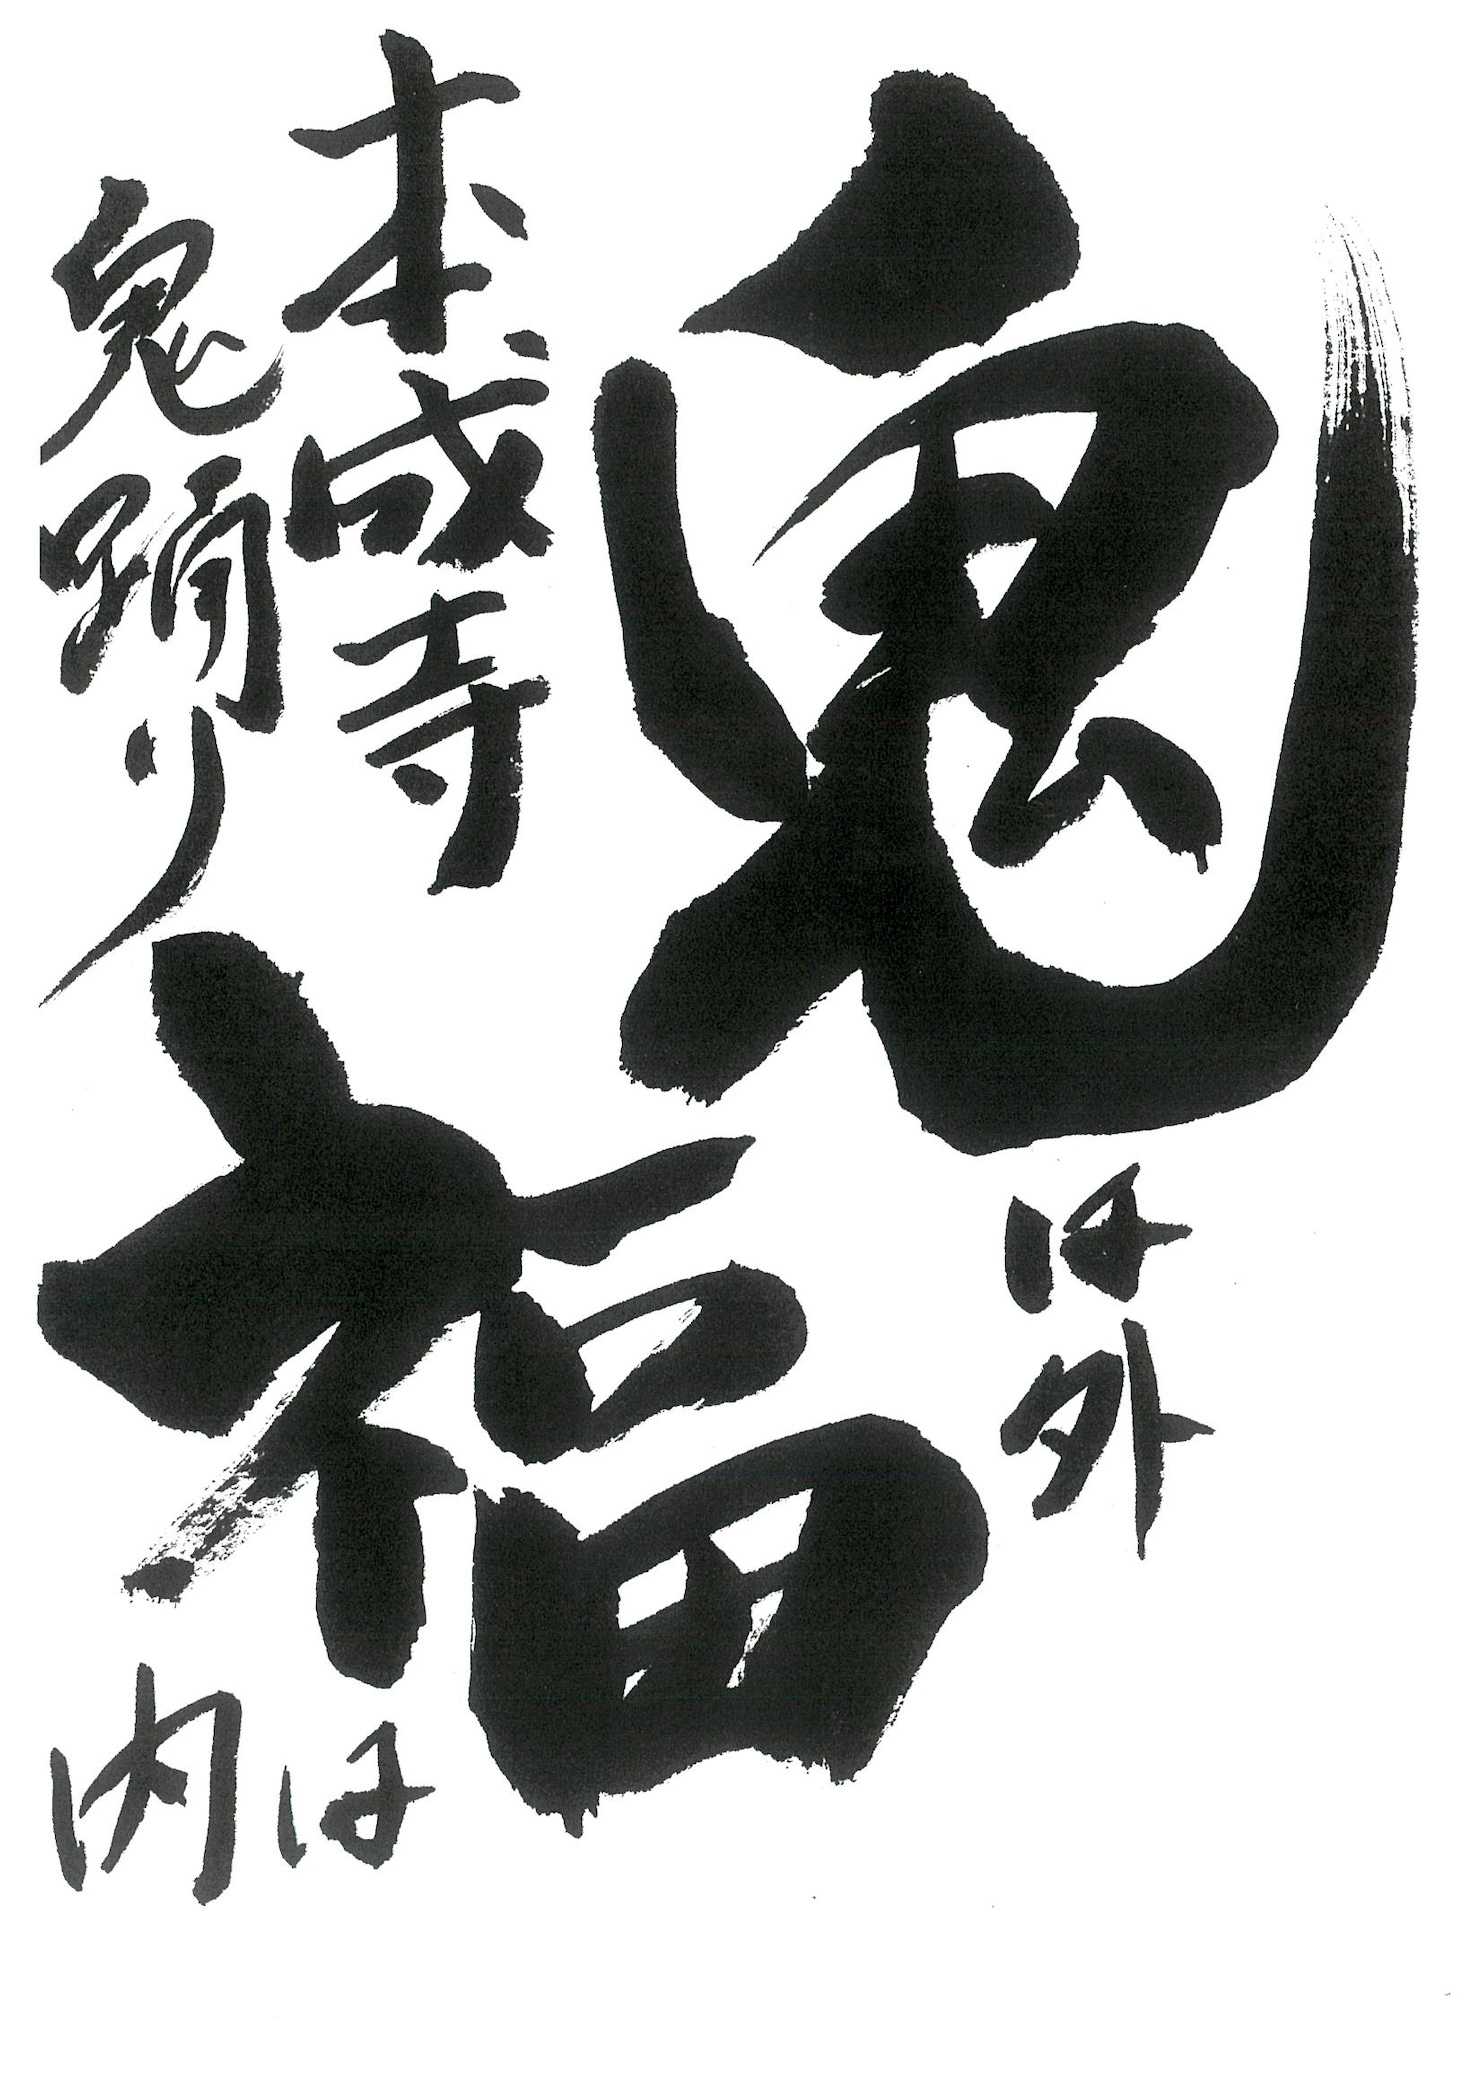 鬼は外
福は内
本成寺
鬼踊り